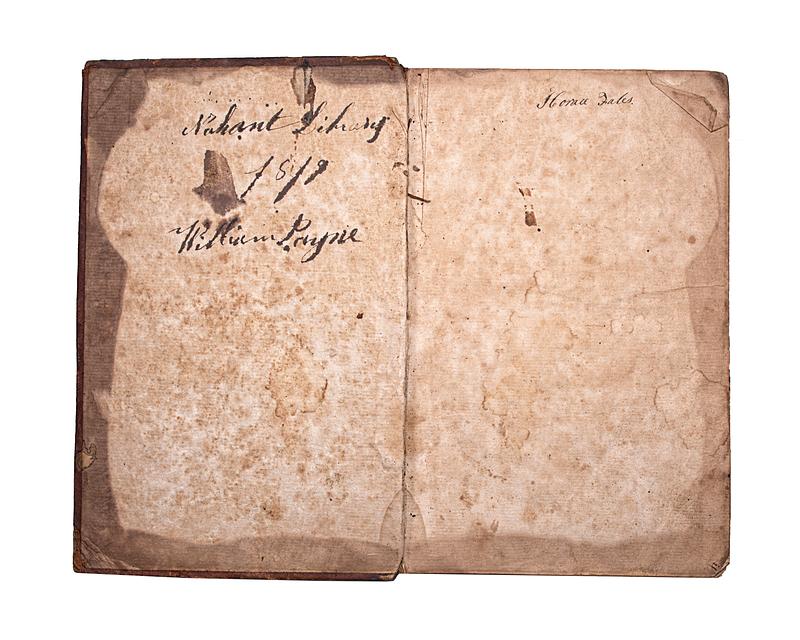 Nahant Library
1819
William Payne
Horace Fales.